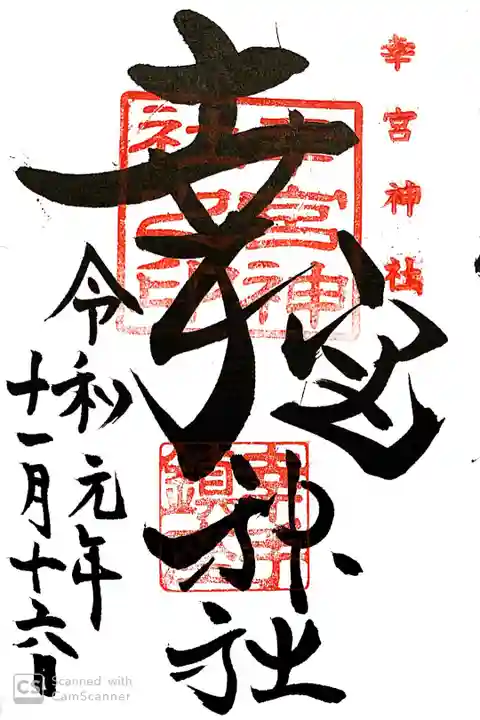 幸宮神社
幸宮神社之印
幸宮神社
令和元年
十一月十六日
CS Scanned with
CamScanner